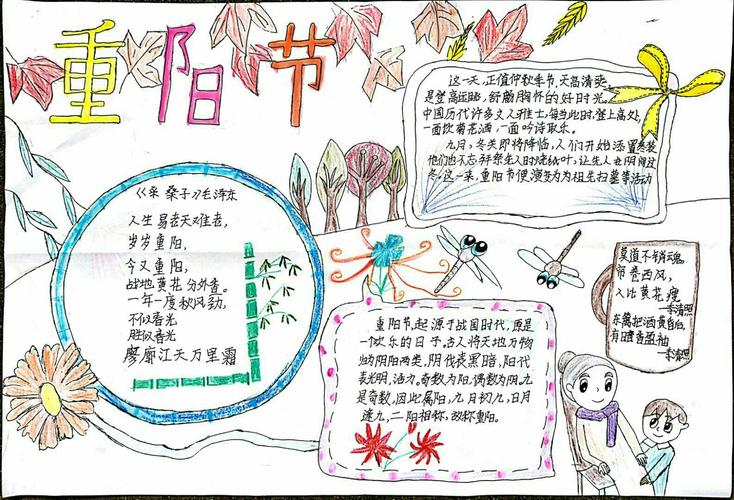 重阳节
这一天,正值仲秋季节,天高清爽,
是登高远眺,舒勵胸怀的好时光。
中国历代许多文人雅士,每当此时,登上高处,
一面饮菊花酒,一面吟诗取乐。
九月,冬天即将降临,人们开始添置冬装
他们也不忘拜祭先人时烧纸叶,让先人在阴间过
冬。这一来,重阳节便演变为为祖先扫墓等活动
《采桑子》毛泽东
人生易老天难老,
岁岁重阳,
今又重阳,
战地黄花分外香。
一年一度秋风劲,
不似春光
胜似春光
廖廓江天万里霜
重阳节,起源于战国时代,原是
一欢乐的日子。古人将天地万物
归为阴阳两类,阴代表黑暗,阳代
表光明,活力。奇数为阳,偶数为阴。九
是奇数,因此属阳,九月初九,日月
逢九,二阳相称,故称重阳。
莫道不销魂
帘卷西风,
人比黄花瘦
一李清照
东篱把酒黄昏后,
有暗香盈袖
一李清照